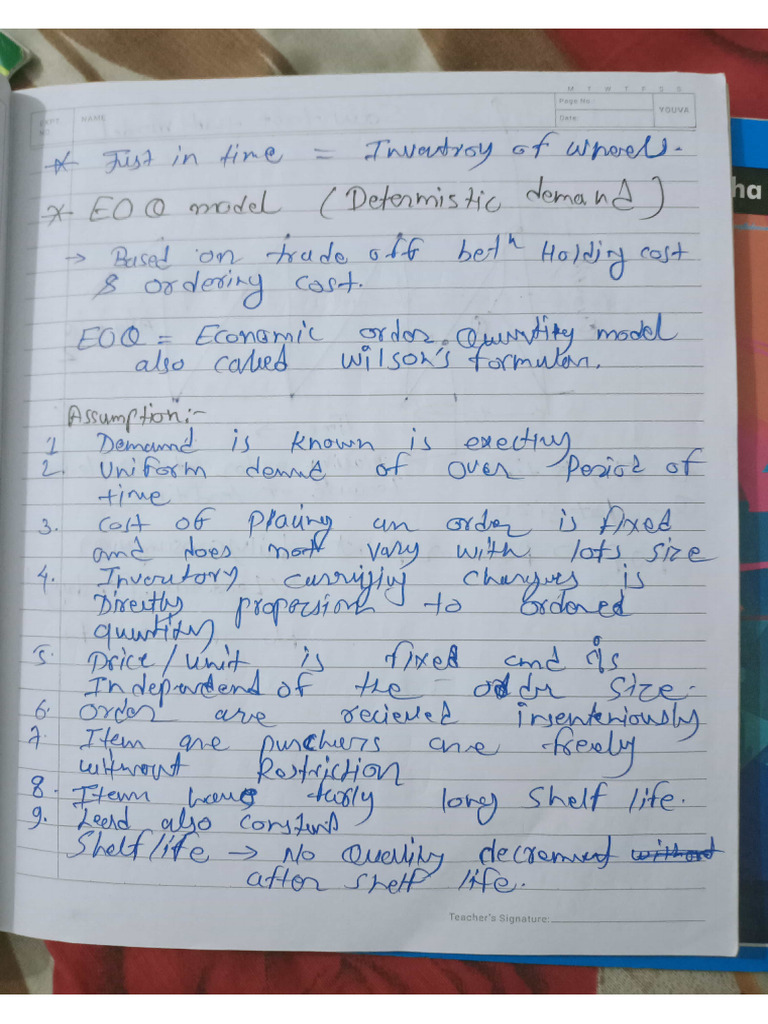 M T W T F S S
Page No.:
YOUVA
Date:
EXPT. NO.
NAME
* Just in time = Inventroy of wheels.
* EOQ model (Determistic demand)
→ Based on trade off betn Holding cost
& ordering cost.
EOQ = Economic order Quantity model
also called Wilson's formulan.
Assumption:-
1 Demand is known is
2. Uniform demnd of over Period of
time
3. Cost of placing an order is fixed
and does not vary with lots size
4. Inventory carrying charges is
Directly proporsion to ordered
quantity
5. Price/unit is fixed and is
Independend of the order size.
6. Order are recieved
7. Item are purchers are freely
without Restriction
8. Item have long shelf life.
9. Lead also constant
Shelf life → No Quality decrement without
after shelf life.
Teacher's Signature:
ha